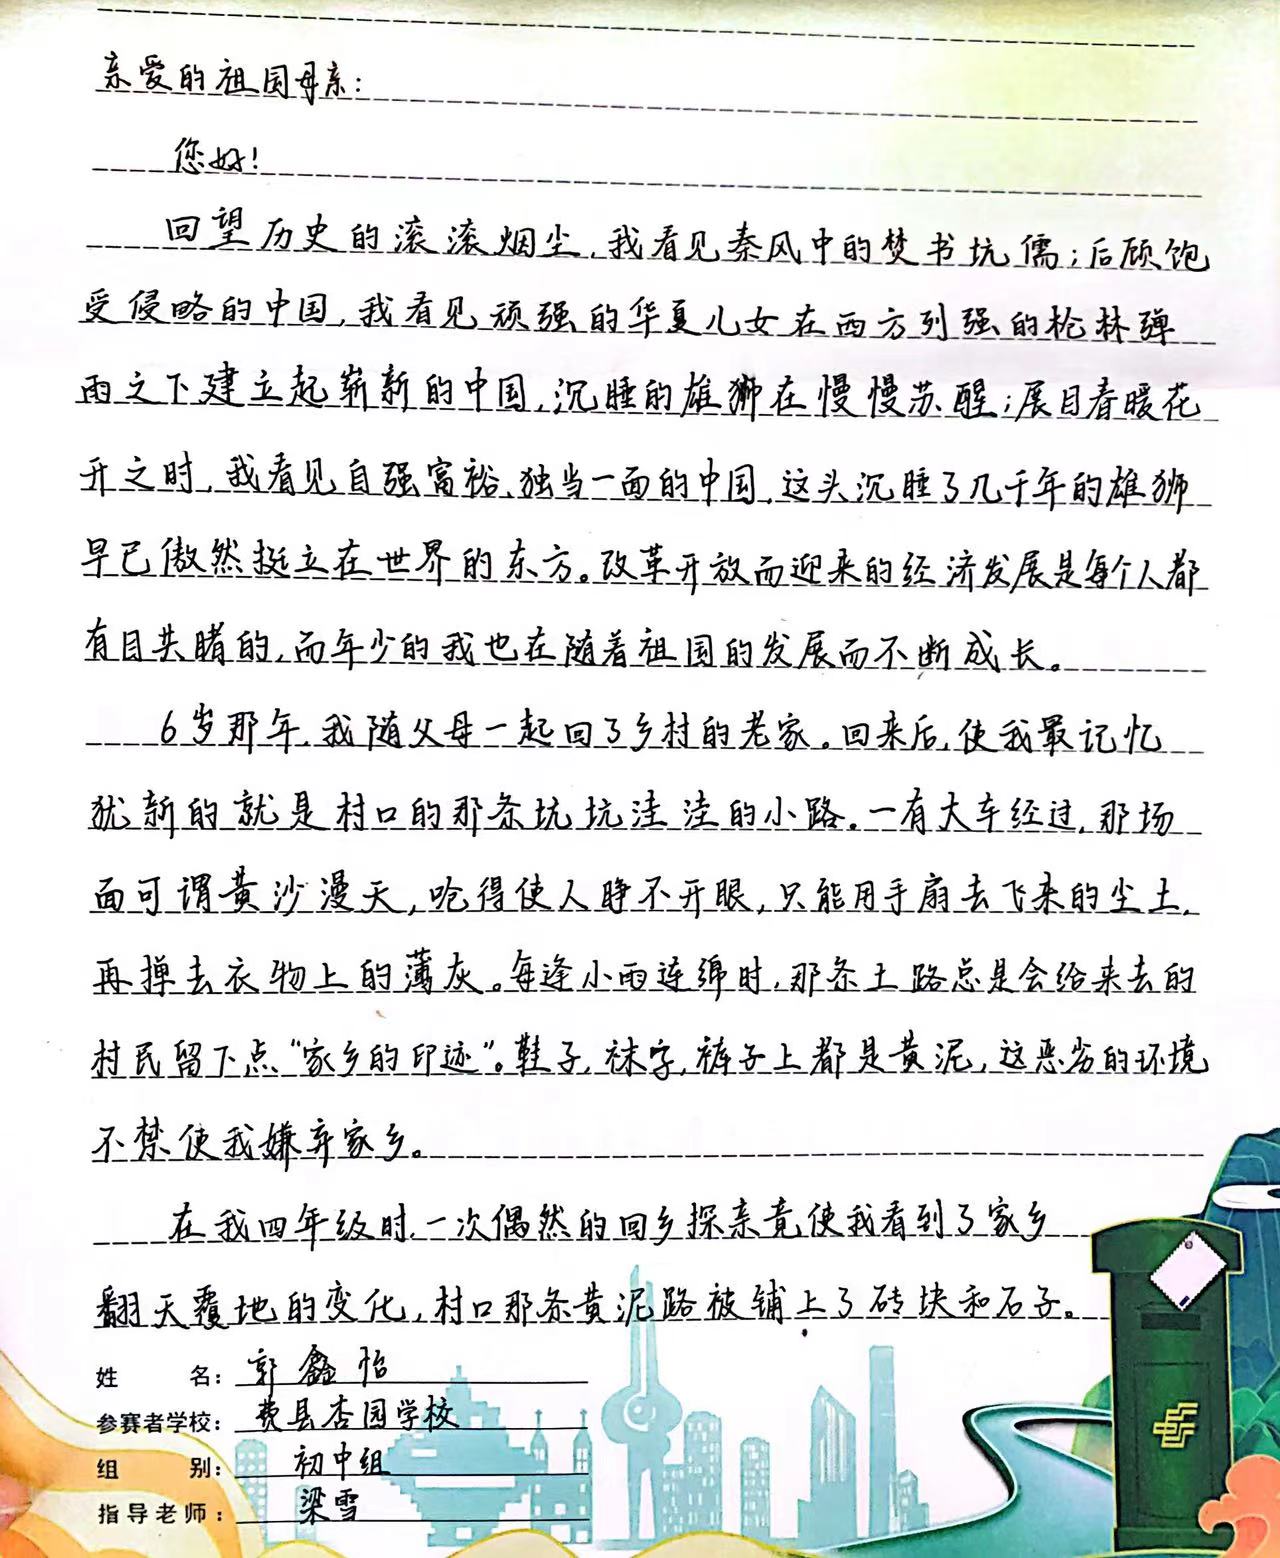 亲爱的祖国母亲：
您好！
回望历史的滚滚烟尘，我看见秦风中的焚书坑儒；后顾饱
受侵略的中国，我看见顽强的华夏儿女在西方列强的枪林弹
雨之下建立起崭新的中国，沉睡的雄狮在慢慢苏醒；展目春暖花
开之时，我看见自强富裕、独当一面的中国，这头沉睡了几千年的雄狮
早已傲然挺立在世界的东方。改革开放而迎来的经济发展是每个人都
有目共睹的，而年少的我也在随着祖国的发展而不断成长。
6岁那年，我随父母一起回了乡村的老家。回来后，使我最记忆
犹新的就是村口的那条坑坑洼洼的小路。一有大车经过，那场
面可谓黄沙漫天，呛得使人睁不开眼，只能用手扇去飞来的尘土，
再掸去衣物上的薄灰。每逢小雨连绵时，那条土路总是会给来去的
村民留下点“家乡的印迹”。鞋子，袜字，裤子上都是黄泥，这恶劣的环境
不禁使我嫌弃家乡。
在我四年级时，一次偶然的回乡探亲竟使我看到了家乡
翻天覆地的变化，村口那条黄泥路被铺上了砖块和石子。
姓名：郭鑫怡
参赛者学校：费县杏园学校
组别：初中组
指导老师：梁雪